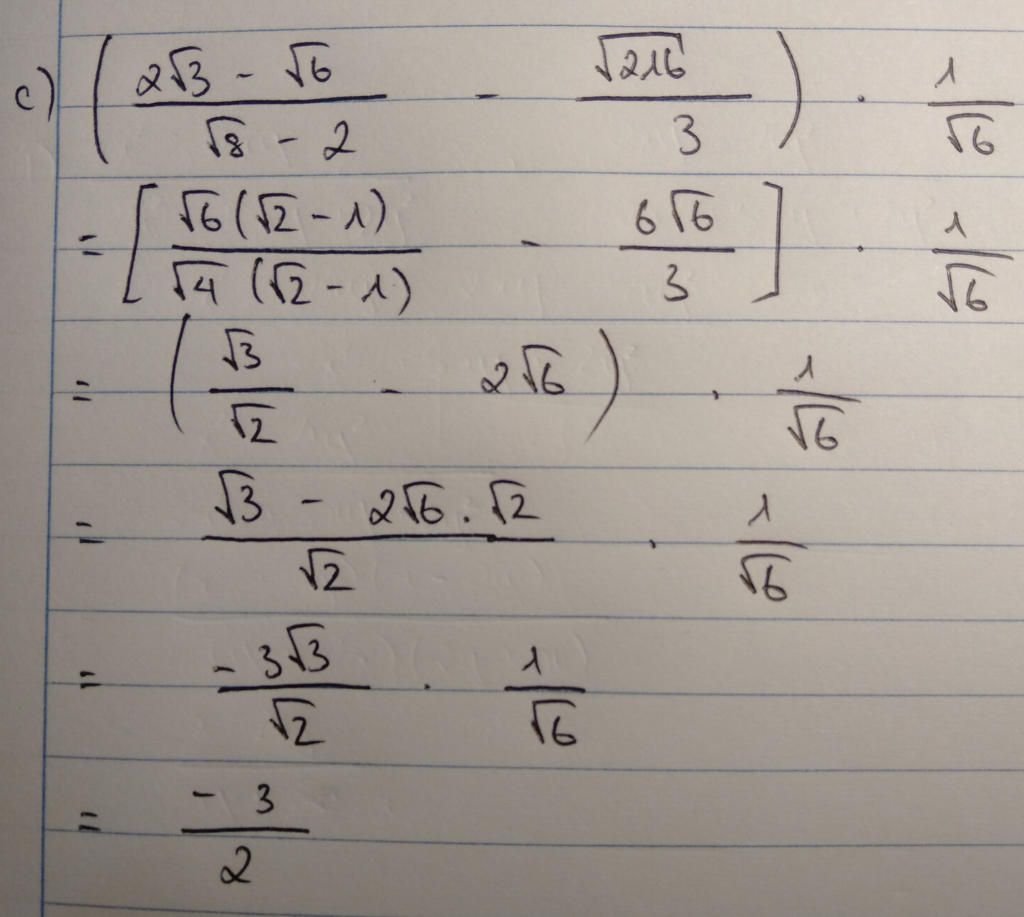 c) ( (2√3 - √6)/(√8 - 2) - √216/3 ) · 1/√6
= [ √6(√2 - 1)/(√4(√2 - 1)) - 6√6/3 ] · 1/√6
= ( √3/√2 - 2√6 ) · 1/√6
= (√3 - 2√6 . √2)/√2 · 1/√6
= -3√3/√2 · 1/√6
= -3/2